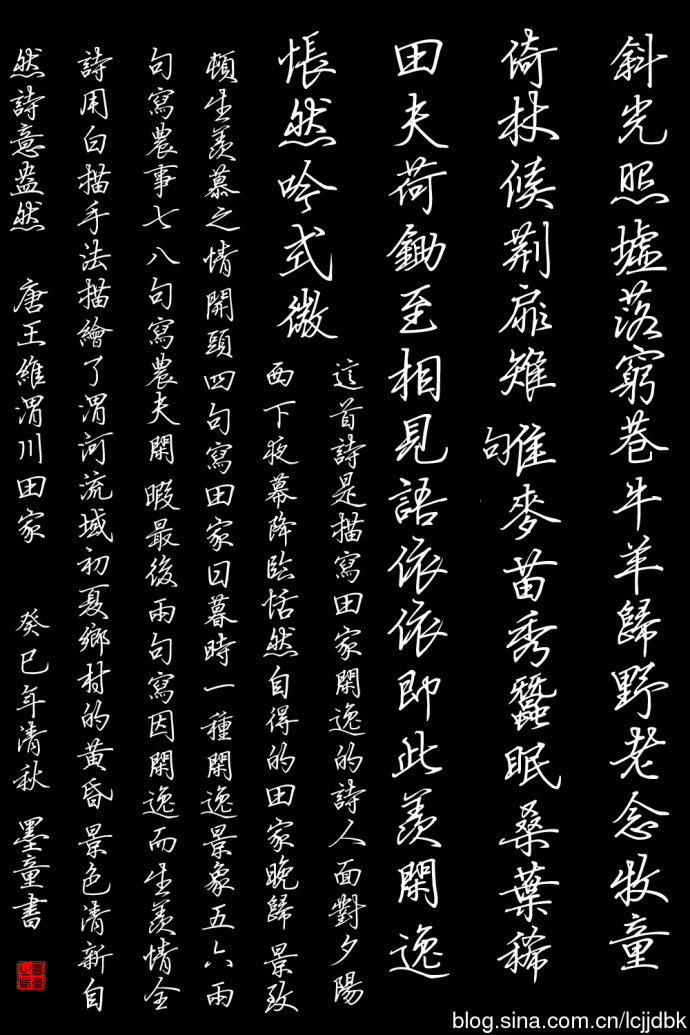 斜光照墟落窮巷牛羊歸野老念牧童
倚杖候荆扉雉雊麥苗秀蠶眠桑葉稀
田夫荷鋤至相見語依依即此羨閑逸
悵然吟式微
這首詩是描寫田家閑逸的詩人面對夕陽
西下夜幕降臨恬然自得的田家晚歸景致
頓生羨慕之情開頭四句寫田家日暮時一種閑逸景象五六兩
句寫農事七八句寫農夫閑暇最後兩句寫因閑逸而生羨情全
詩用白描手法描繪了渭河流域初夏鄉村的黄昏景色清新自
然詩意盎然 唐王維渭川田家 癸巳年清秋 墨童書
blog.sina.com.cn/lcjjdbk